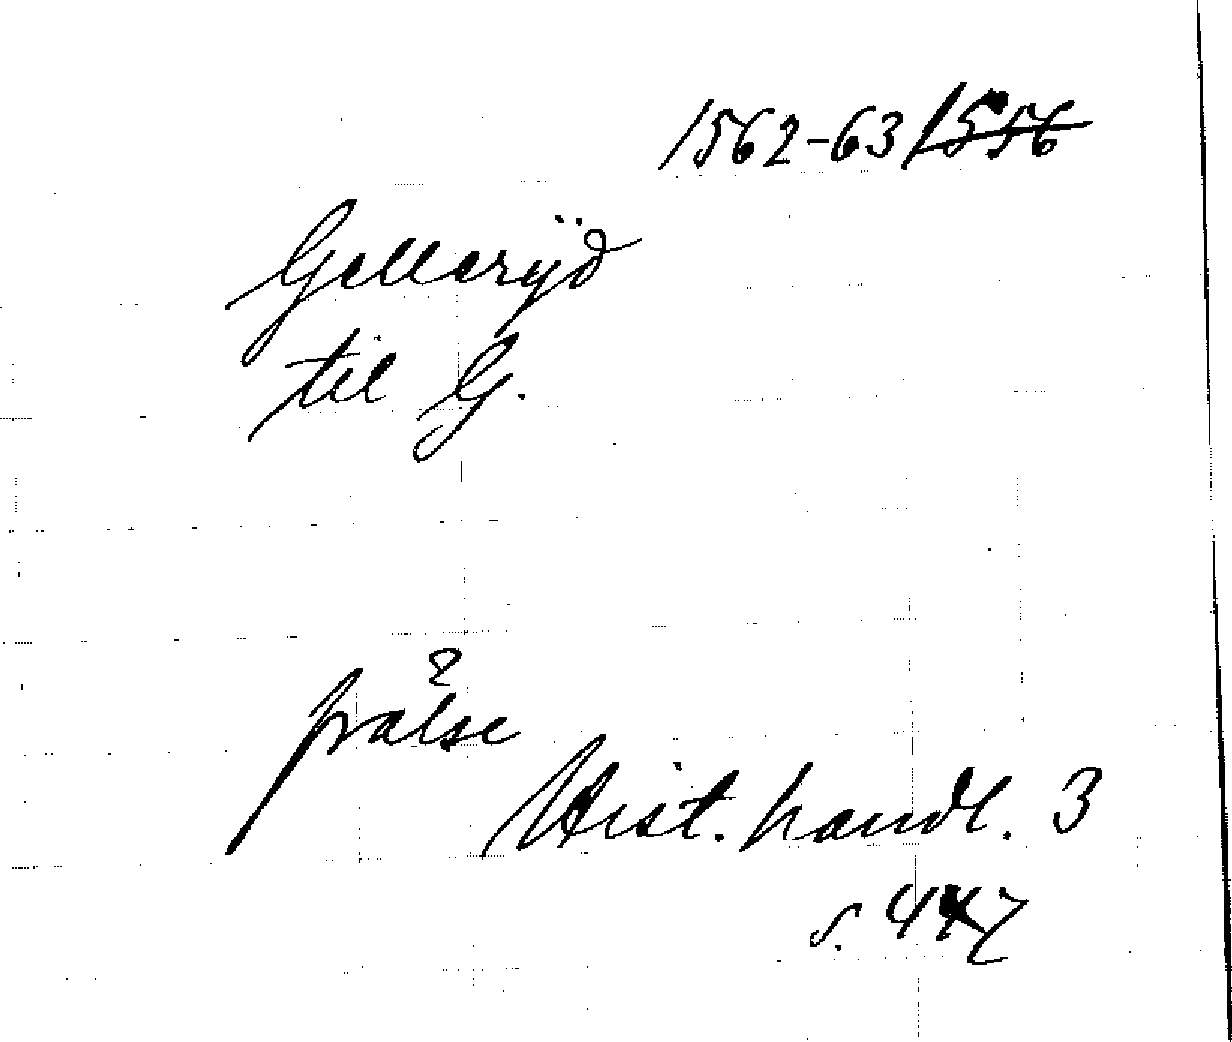 1562-63 1556
Gelleryd
til G.
frälse
Hist. handl. 3
s. 447